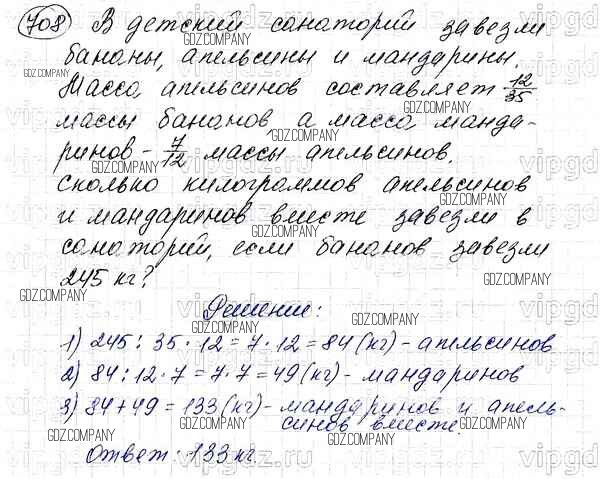 708 В детский санаторий завезли
бананы, апельсины и мандарины.
Масса апельсинов составляет 12/35
массы бананов, а масса манда-
ринов - 7/12 массы апельсинов.
Сколько килограммов апельсинов
и мандаринов вместе завезли в
санаторий, если бананов завезли
245 кг?
Решение:
1) 245 : 35 · 12 = 7 · 12 = 84 (кг) - апельсинов
2) 84 : 12 · 7 = 7 · 7 = 49 (кг) - мандаринов
3) 84 + 49 = 133 (кг) - мандаринов и апель-
синов вместе.
Ответ: 133 кг.